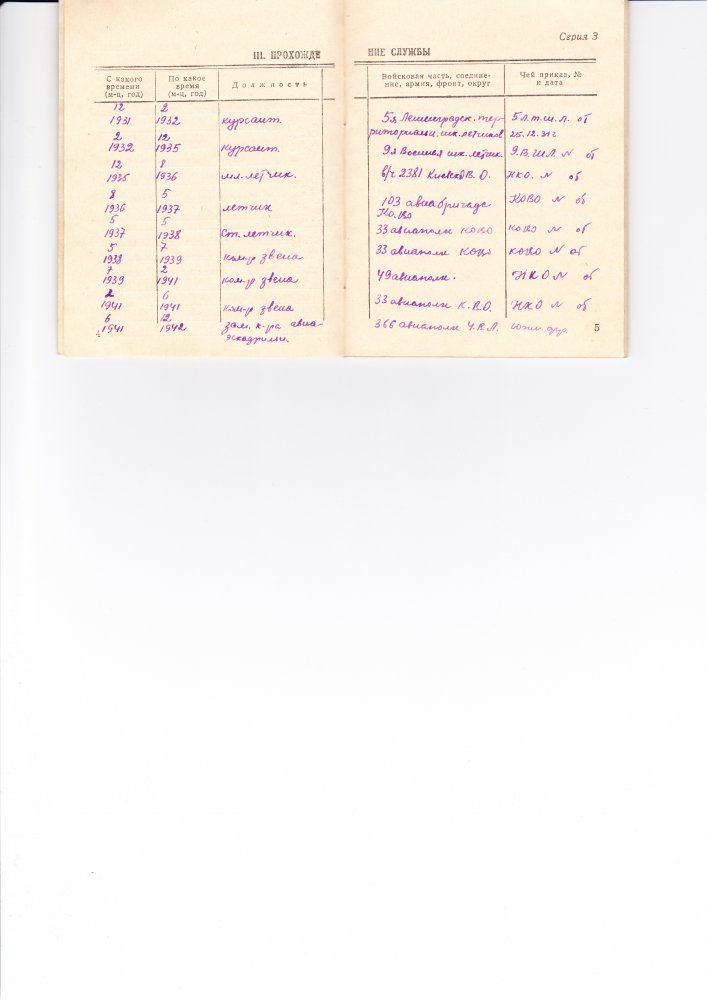 Серия 3
III. ПРОХОЖДЕ НИЕ СЛУЖБЫ
С какого времени (м-ц, год) По какое время (м-ц, год) Должность Войсковая часть, соедине-ние, армия, фронт, округ Чей приказ, № и дата
12 2
1931 1932 курсант. 5я Ленинградск. тер- 5 л.т.ш.л. от
2 12 риториальн. шк. летчиков 25.12.31 г.
1932 1935 курсант. 9я Военная шк. летчик. 9.В.Ш.Л. N от
12 8
1935 1936 мл. летчик. в/ч 2381 Киевск В.О. НКО. N от
8 5
1936 1937 летчик 103 авиабригада КОВО N от
КОВО
5 5
1937 1938 ст. летчик. 33 авиаполк КОВО КОВО N от
5 7
1938 1939 ком-р звена 33 авиаполк КОВО КОВО N от
7 2
1939 1941 ком-р звена 49 авиаполк. НКО N от
2 6
1941 1941 ком-р звена 33 авиаполк К.В.О. НКО N от
6 12
1941 1942 зам. к-ра авиа- 366 авиаполк Ч.В.Л. южн. фр.
эскадрильи.
4 5